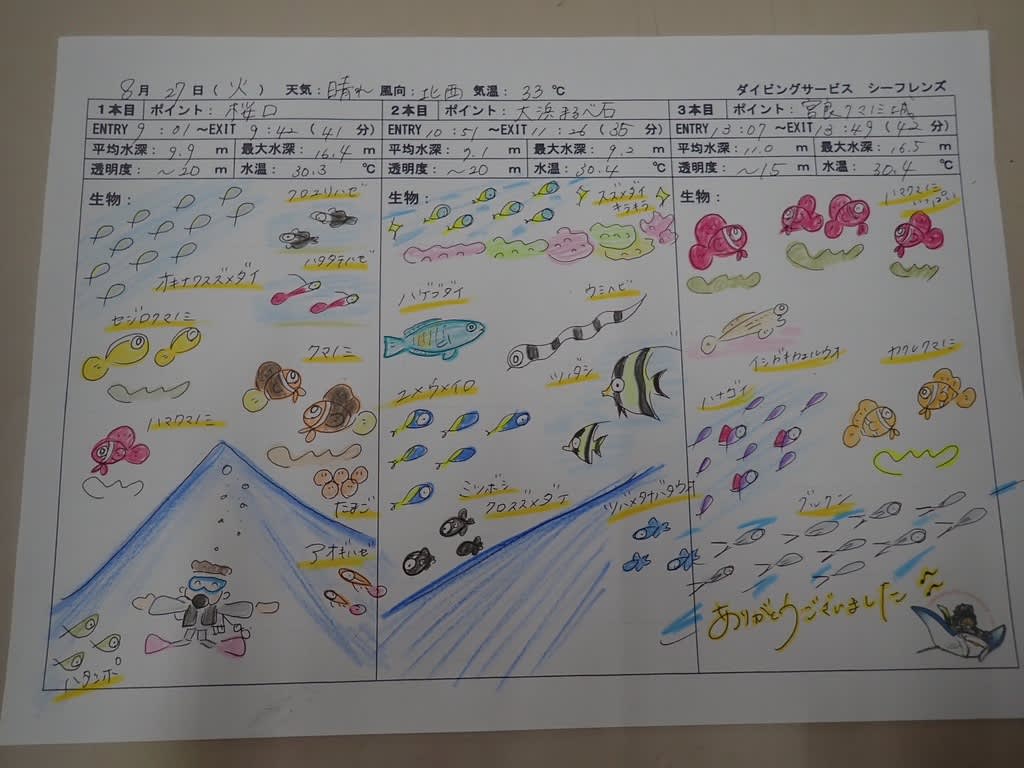 8月 27日(火) 天気：晴れ 風向：北西 気温：33℃ ダイビングサービス シーフレンズ
1本目 ポイント：桜口
ENTRY 9：01～EXIT 9：42(41分)
平均水深：9.9 m 最大水深：16.4 m
透明度：～20 m 水温：30.3 ℃
生物：
クロユリハゼ
ハタタテハゼ
オキナワスズメダイ
セジロクマノミ
クマノミ
ハマクマノミ
たまご
アオギハゼ
ハタンポ
2本目 ポイント：大浜まるべ石
ENTRY 10：51～EXIT 11：26(35分)
平均水深：7.1 m 最大水深：9.2 m
透明度：～20 m 水温：30.4 ℃
生物：
スズメダイ
キラキラ
ハゲブダイ
ウミヘビ
ツノダシ
ユメウメイロ
ミツボシ
クロスズメダイ
ツバメタナバタウオ
3本目 ポイント：宮良クマノミ城
ENTRY 13：07～EXIT 13：49(42分)
平均水深：11.0 m 最大水深：16.5 m
透明度：～15 m 水温：30.4 ℃
生物：
ハマクマノミ
いっぱい
イシガキカエルウオ
カクレクマノミ
ハナゴイ
グルクン
ありがとうございました